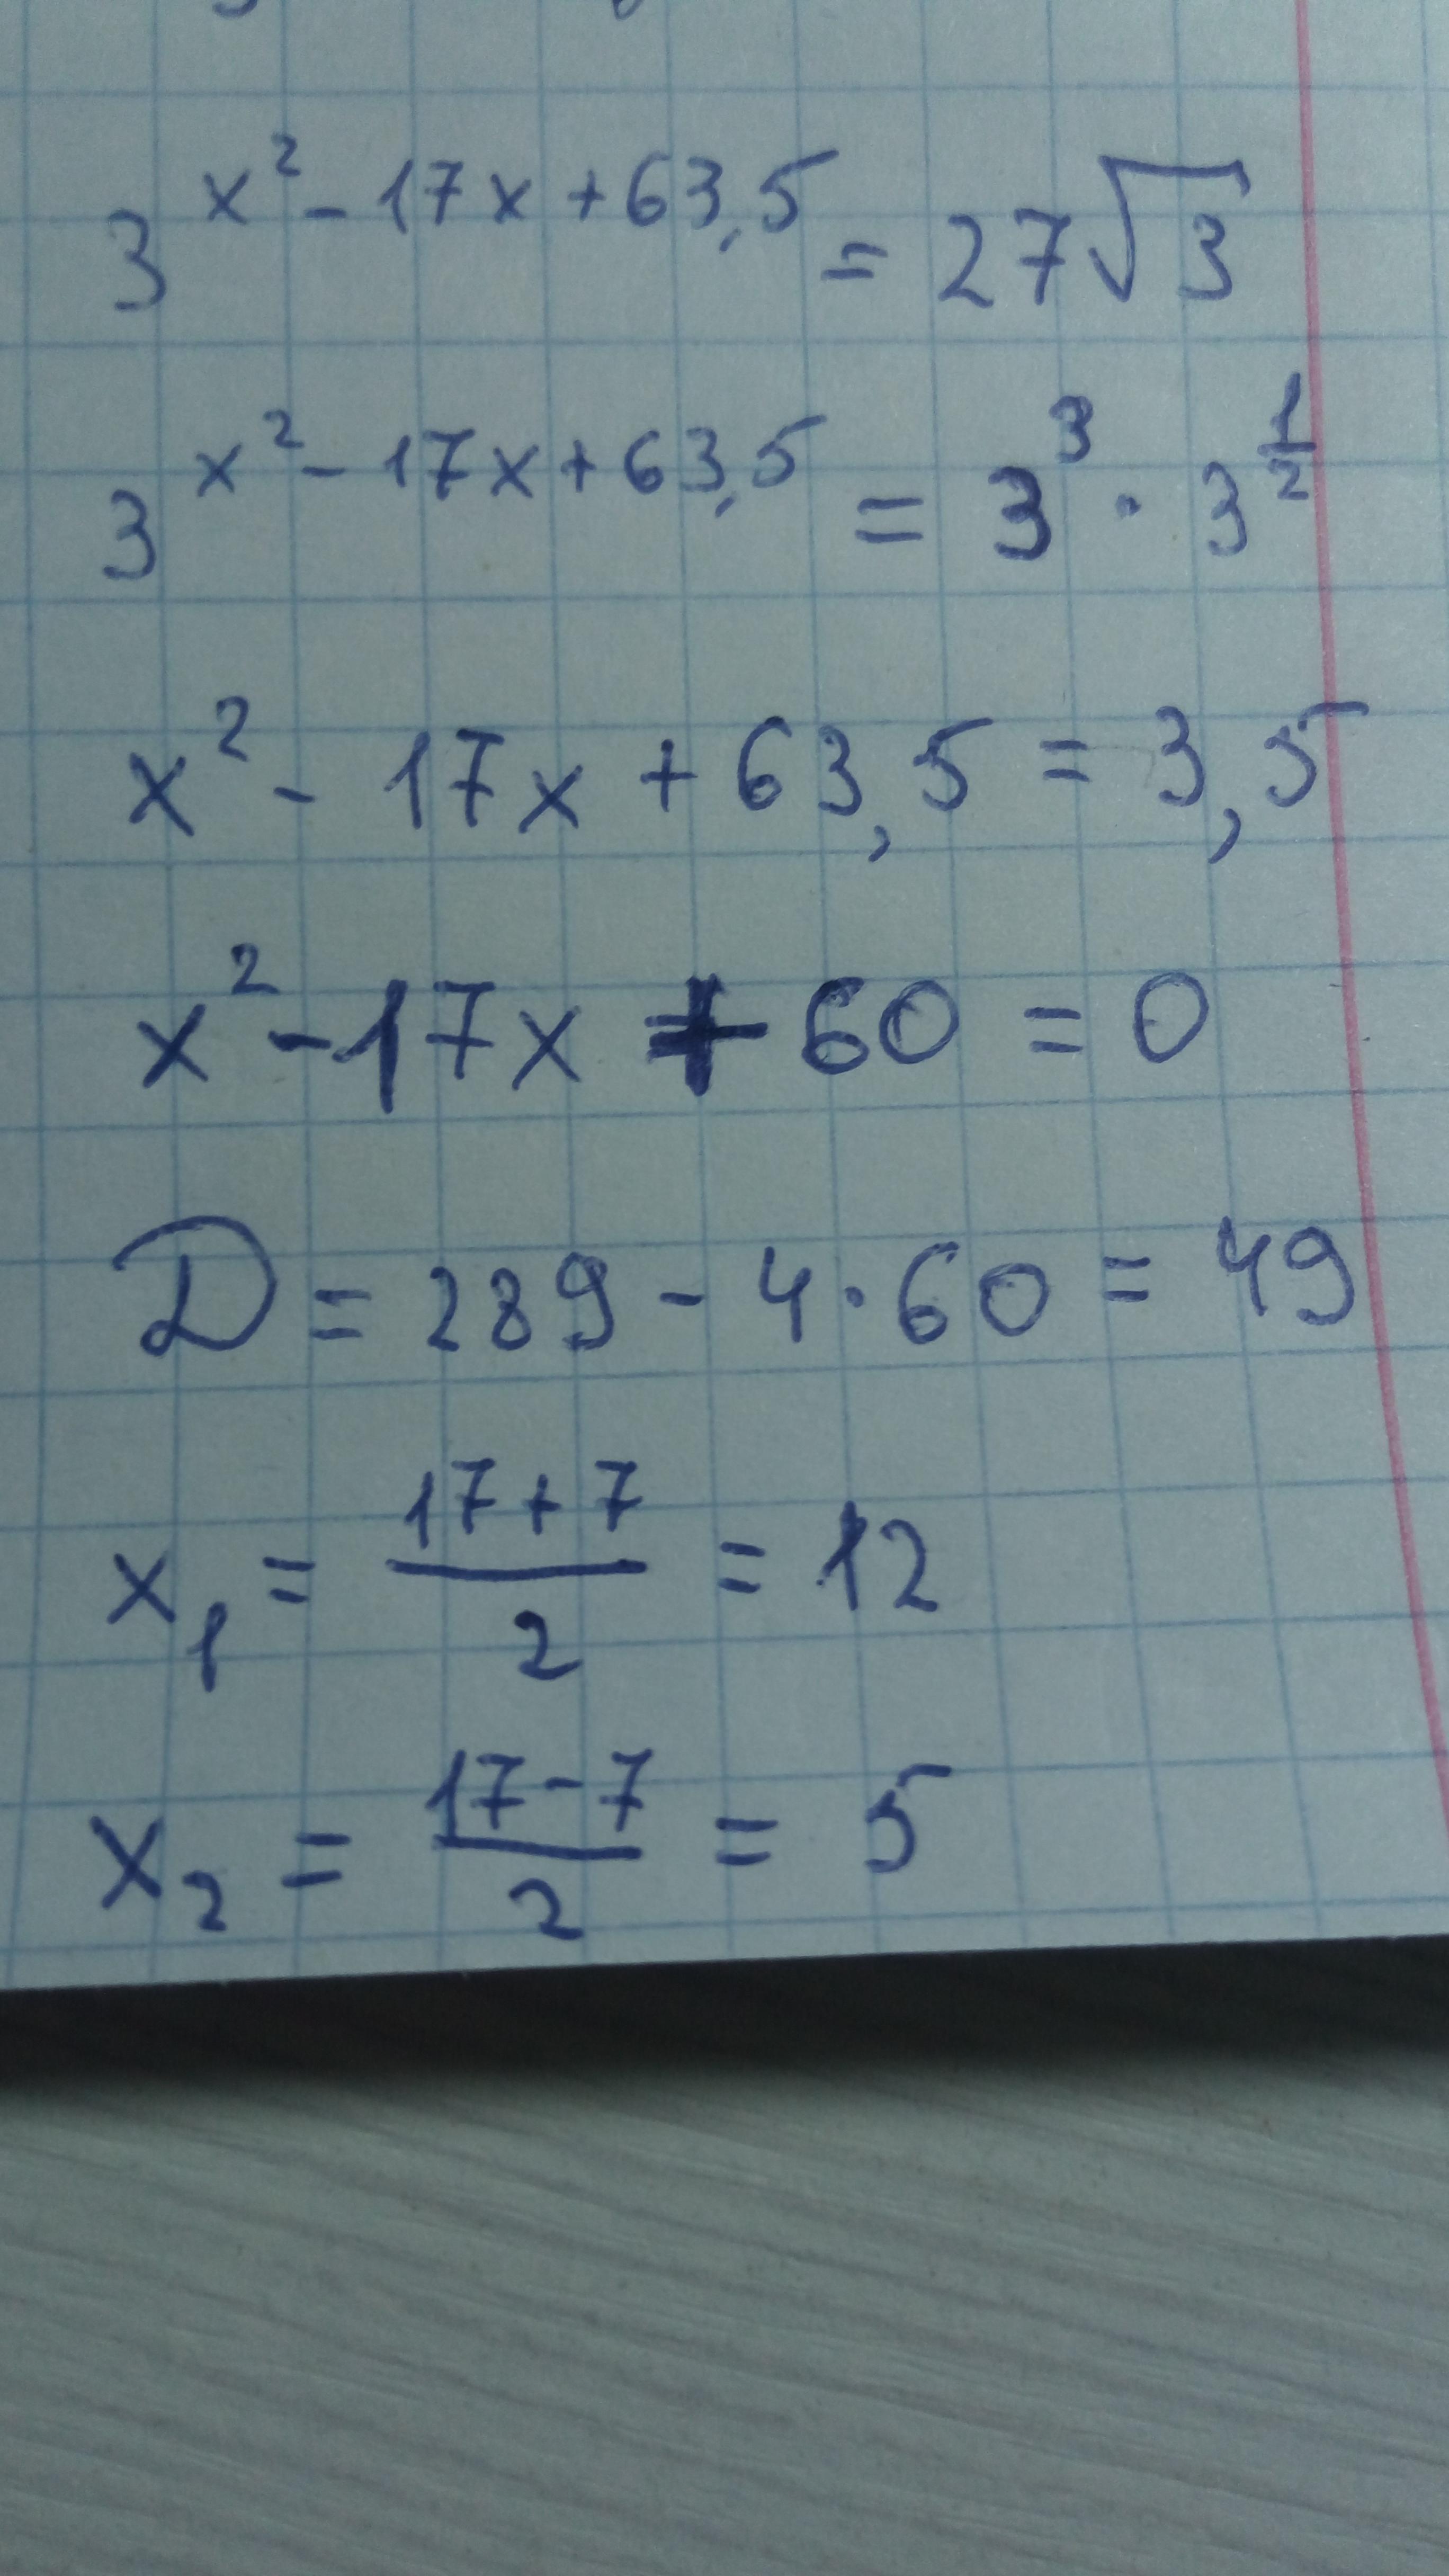 3^{x² - 17x + 63,5} = 27√3
3^{x² - 17x + 63,5} = 3³ · 3^{1/2}
x² - 17x + 63,5 = 3,5
x² - 17x + 60 = 0
D = 289 - 4 · 60 = 49
x₁ = (17 + 7)/2 = 12
x₂ = (17 - 7)/2 = 5